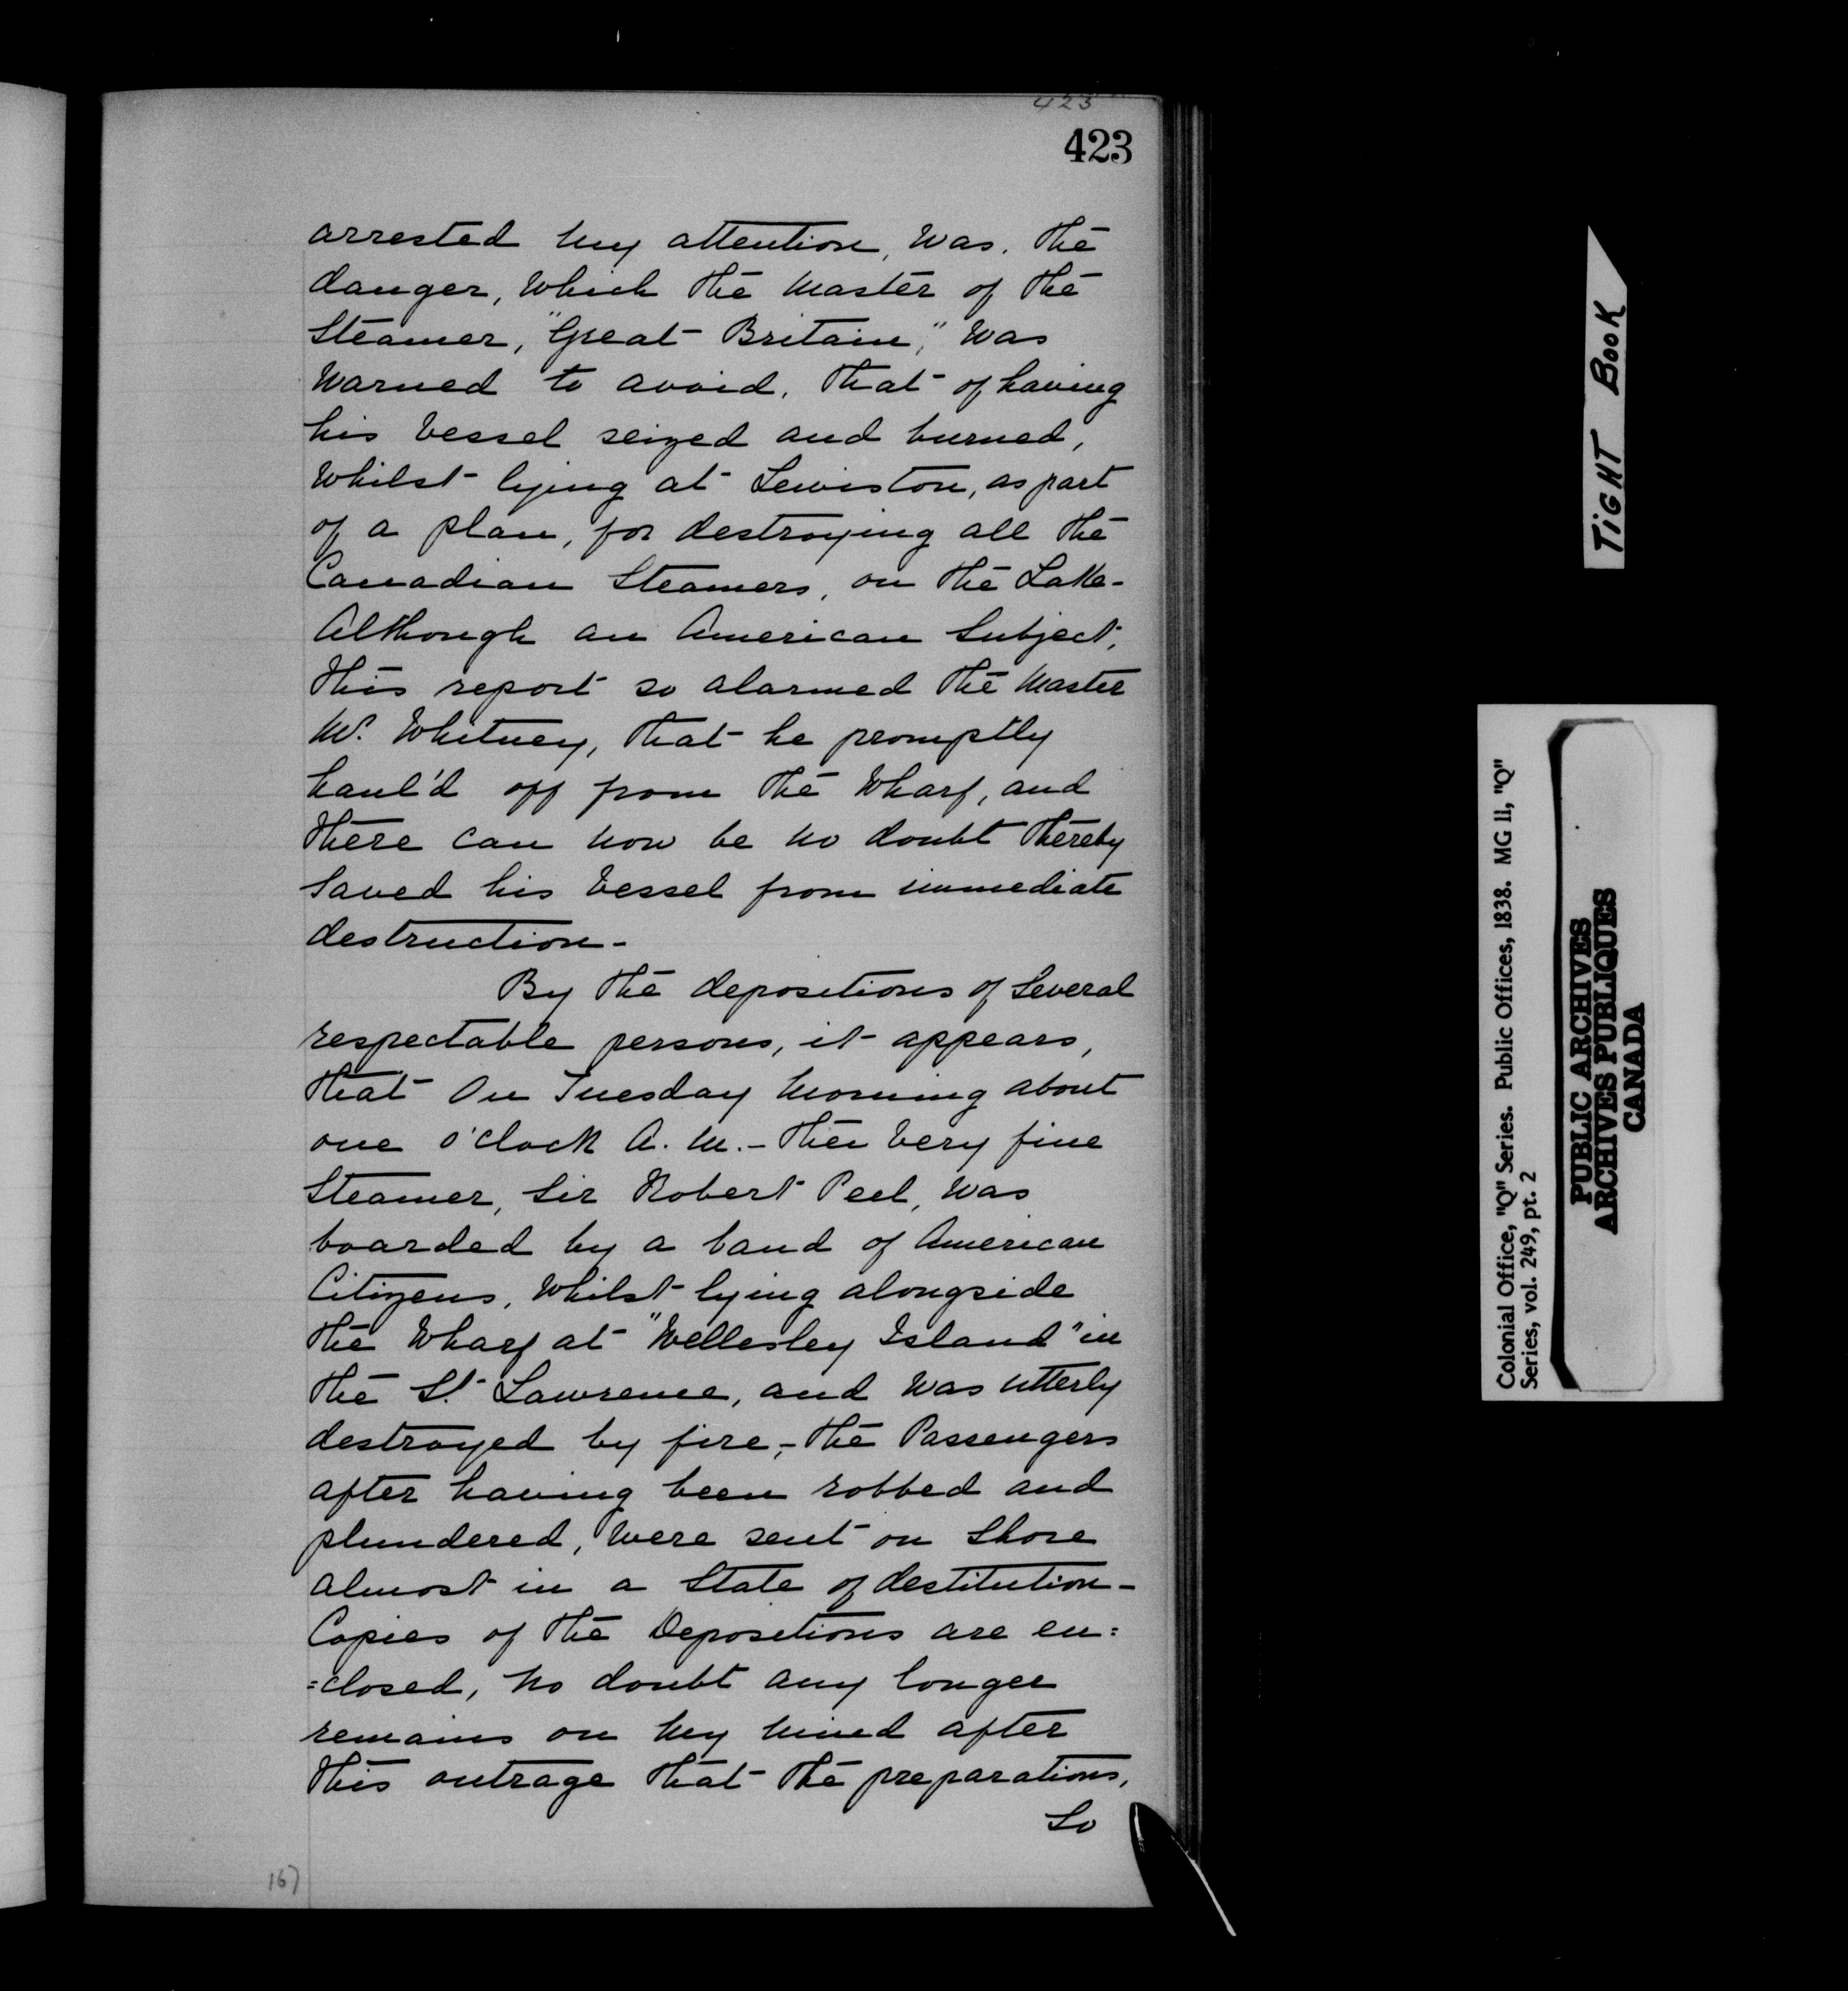 423
423
arrested my attention, was, the
danger, which the Master of the
Steamer, "Great Britain," was
warned to avoid, that of having
his vessel seized and burned,
whilst lying at Lewiston, as part
of a plan, for destroying all the
Canadian Steamers, on the Lake-
Although an American Subject,
this report so alarmed the Master
Mr. Whitney, that he promptly
haul'd off from the Wharf, and
there can now be no doubt thereby
saved his vessel from immediate
destruction-
By the depositions of several
respectable persons, it appears,
that on Tuesday morning about
one o'clock A.M.- the very fine
Steamer, Sir Robert Peel, was
boarded by a band of American
Citizens, whilst lying alongside
the Wharf at "Wellesley Island" in
the St. Lawrence, and was utterly
destroyed by fire,- the Passengers
after having been robbed and
plundered, were sent on shore
almost in a State of destitution-
Copies of the Depositions are en=
=closed, no doubt any longer
remains on my mind after
this outrage that the preparations,
So
167
TIGHT BOOK
Colonial Office, "Q" Series. Public Offices, 1838. MG 11, "Q"
Series, vol. 249, pt. 2
PUBLIC ARCHIVES
ARCHIVES PUBLIQUES
CANADA